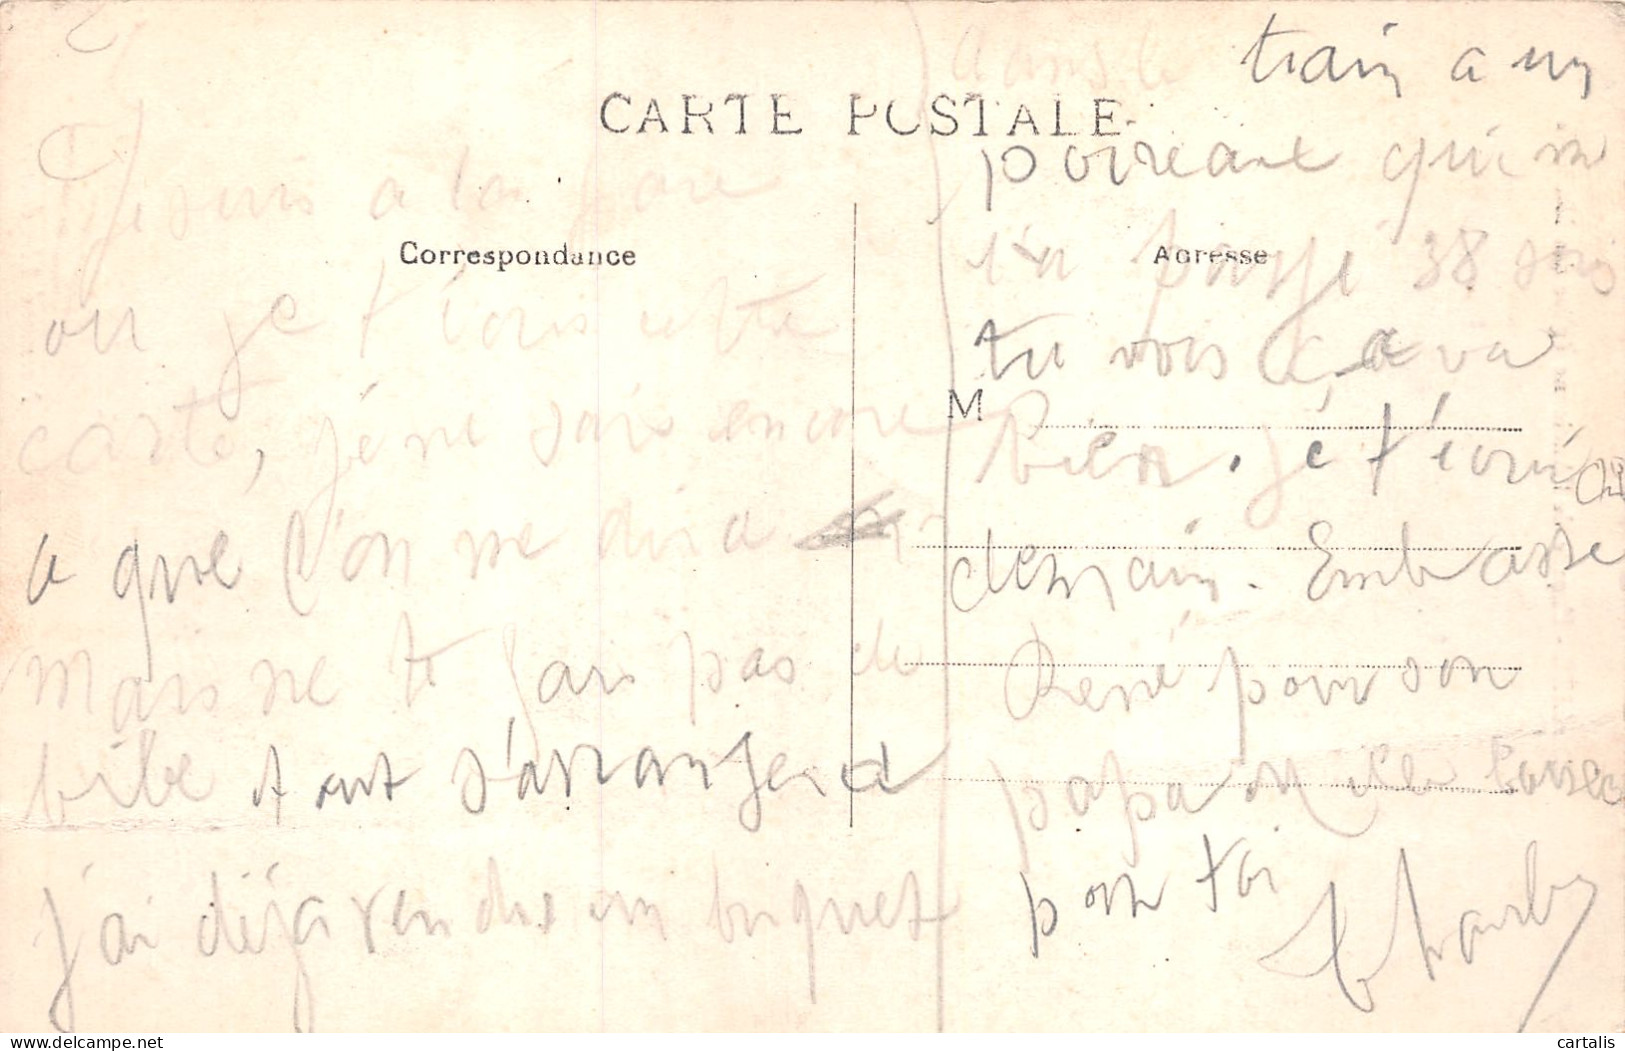 CARTE POSTALE
Correspondance
Je suis a la gare
ou je t'écris cette
carte, je ne sais encore
a que l'on me dira
mais ne te fais pas de
bile tout s'arrangera
j'ai déja vendu un briquet
Adresse
M
dans le train a un
poireaux qui m
l'a payé 38 sous
tu vois ça va
bien. je t'écrirai
demain. Embrasse
René pour son
papa mille baisers
pour toi
Charly
cartalis
delcampe.net